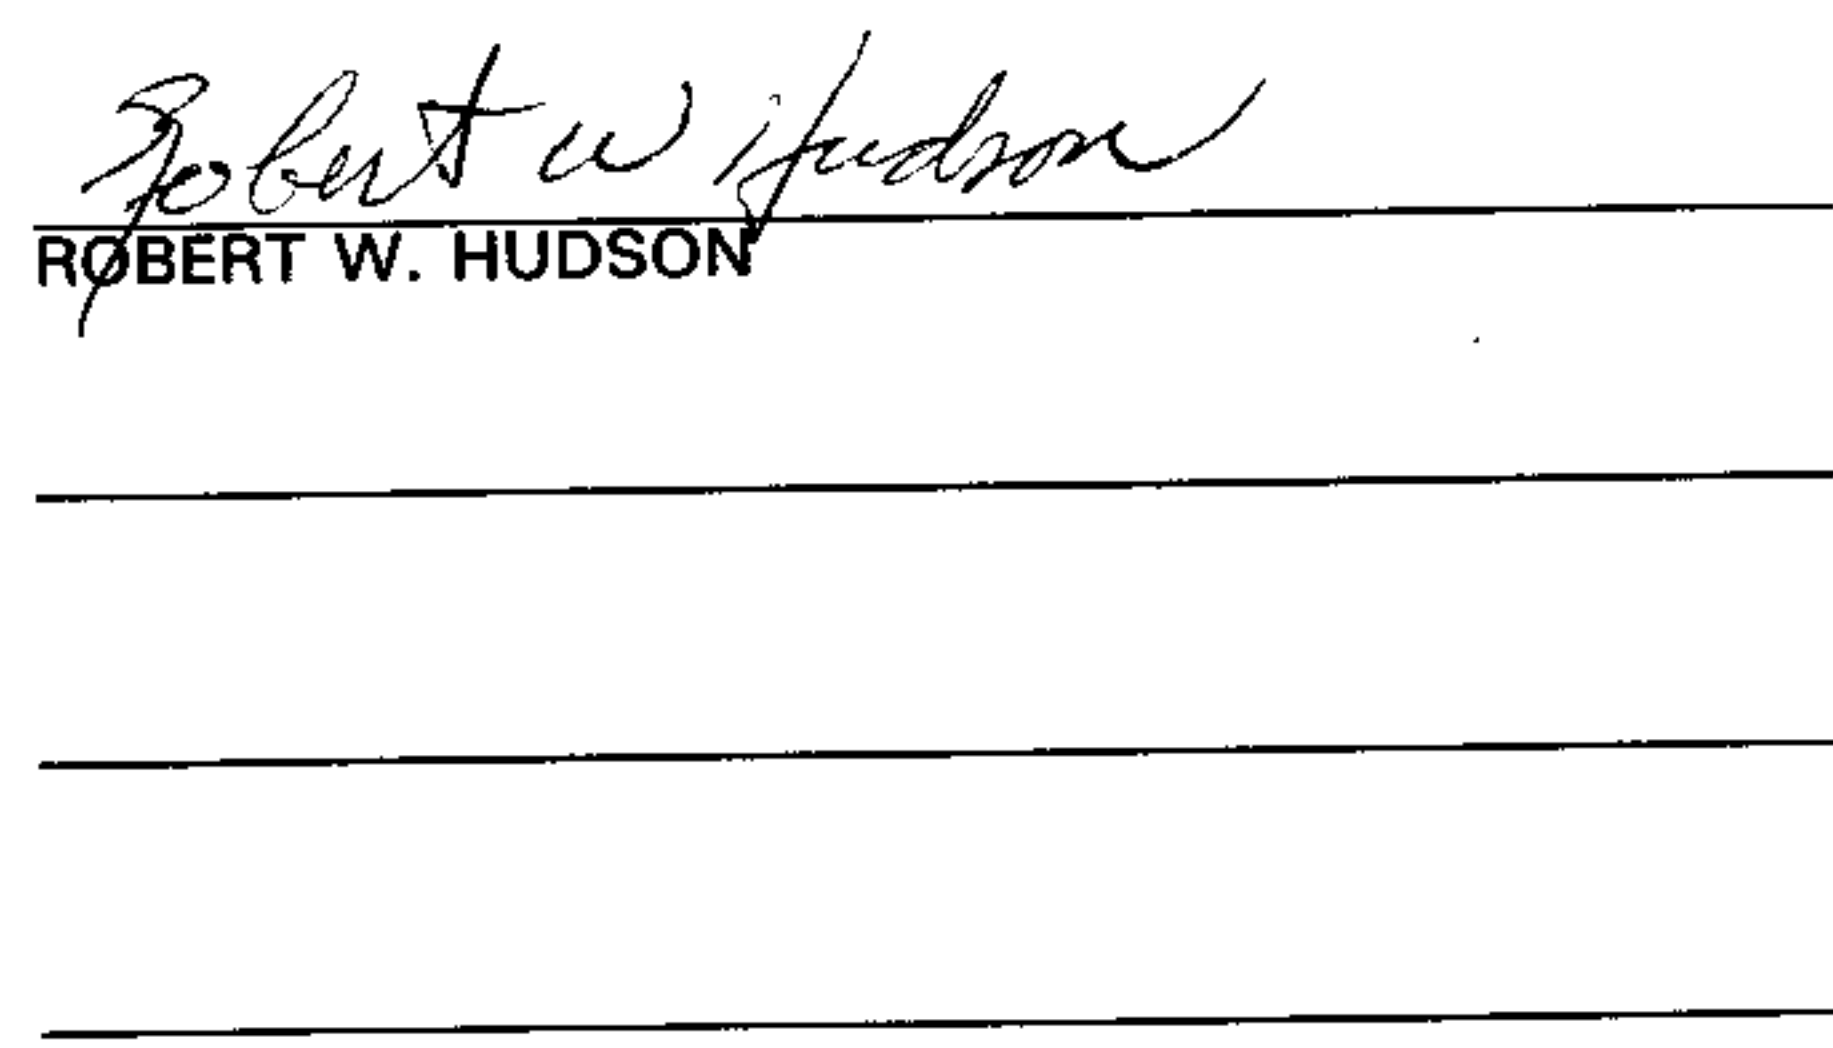 Robert W Hudson
ROBERT W. HUDSON